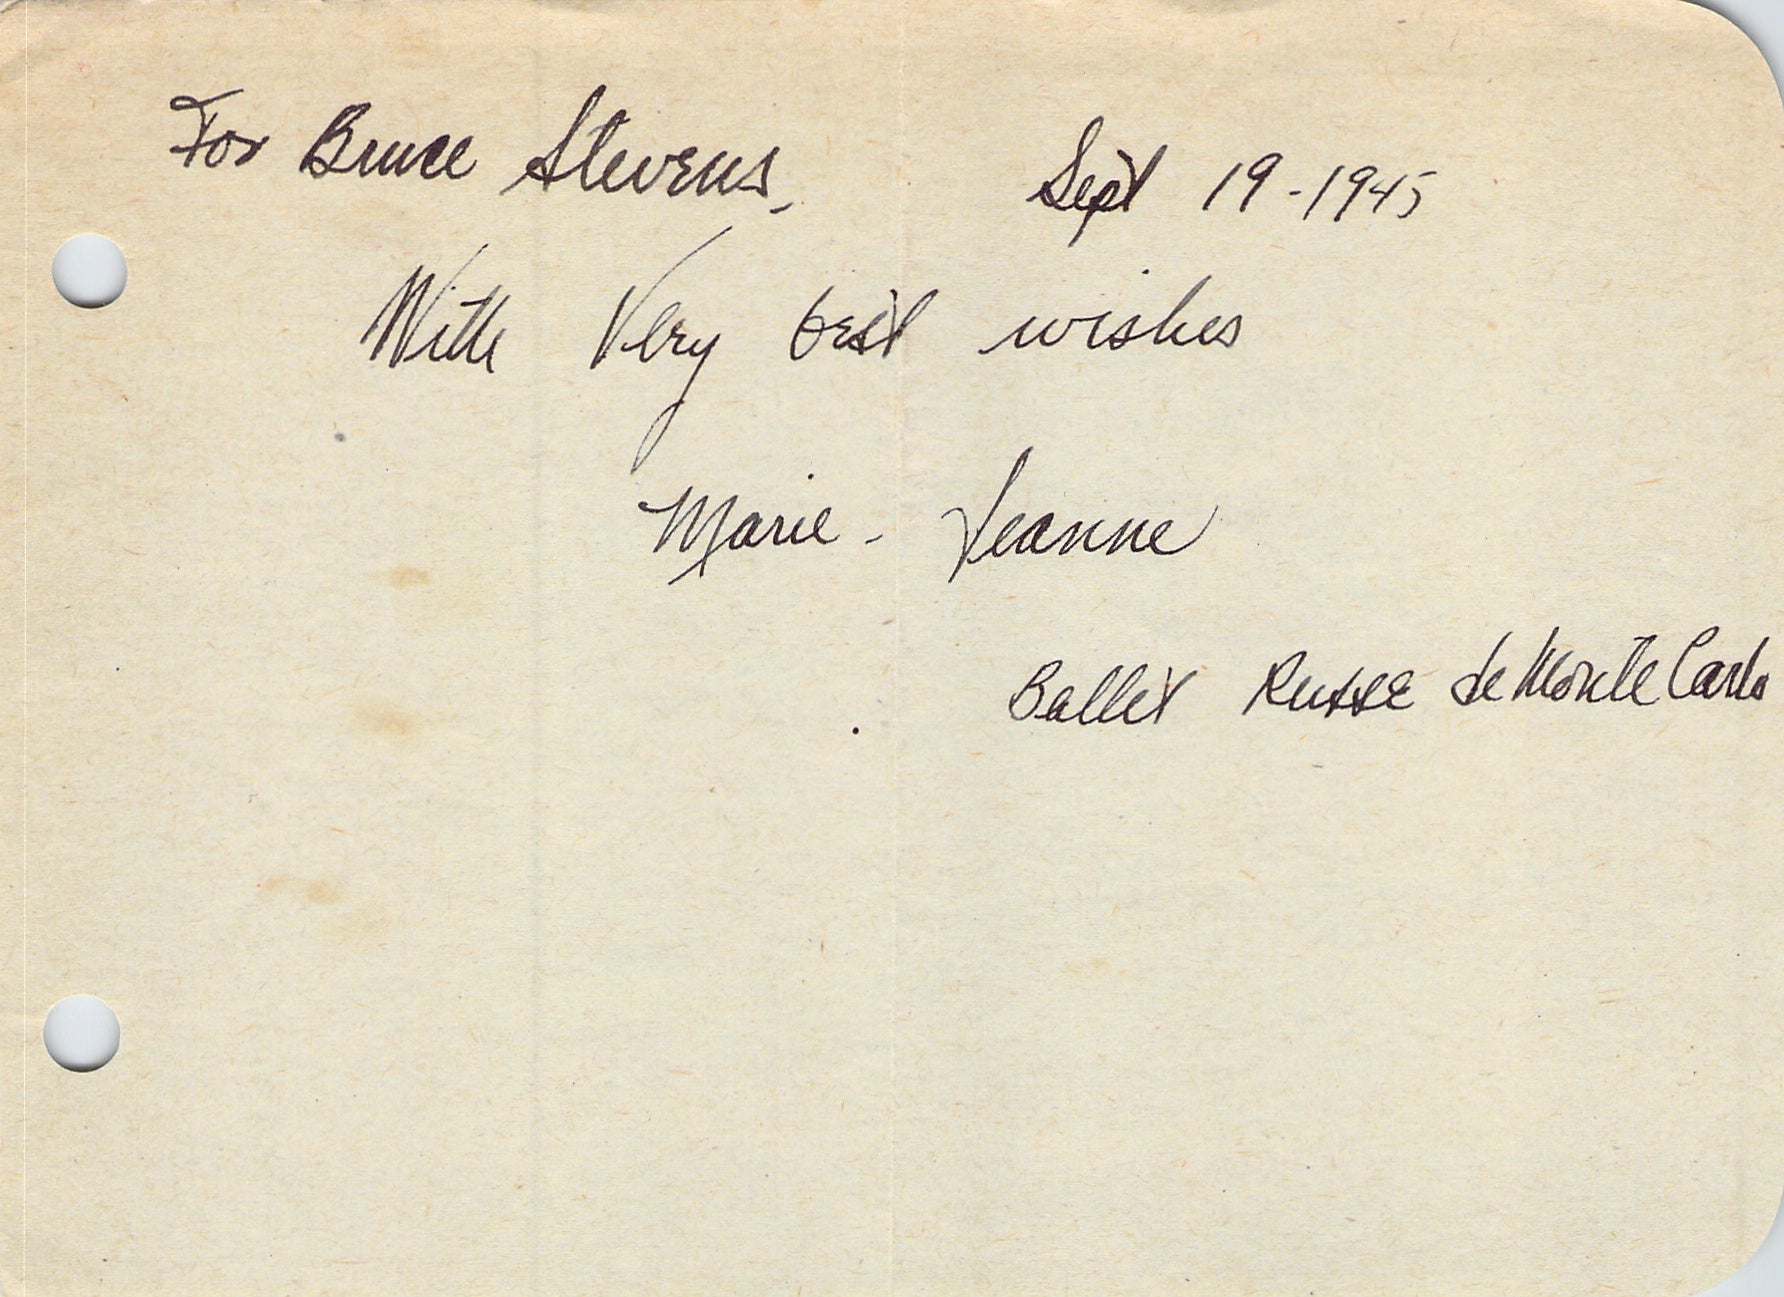 For Bruce Stevens, Sept 19-1945
With Very best wishes
Marie - Jeanne
Ballet Russe de Monte Carlo